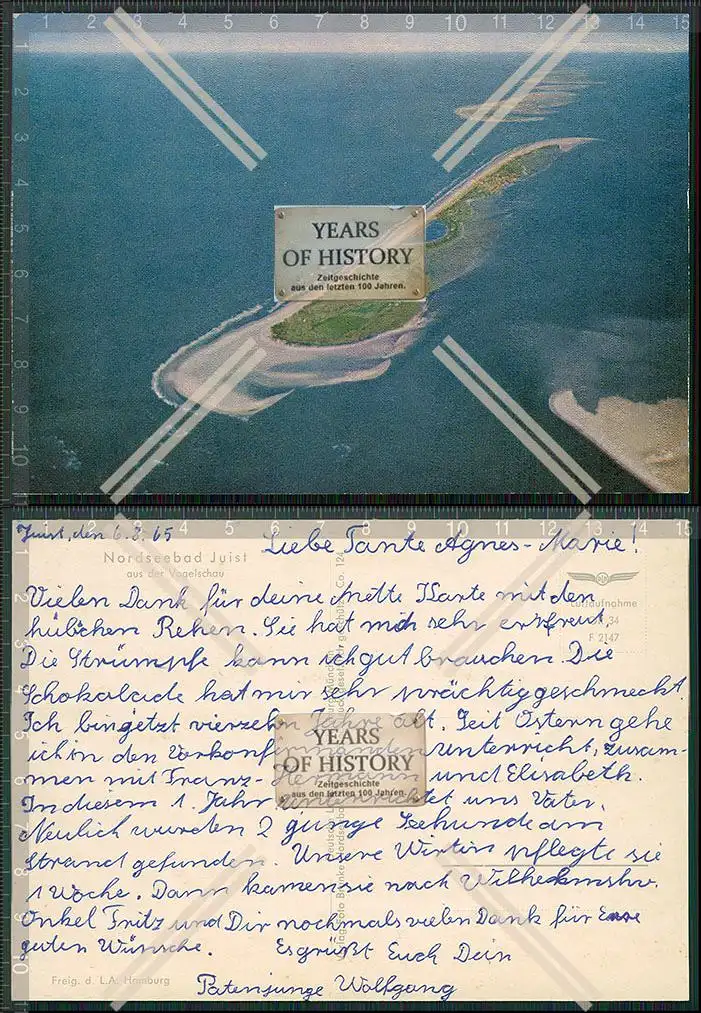 YEARS
OF HISTORY
Zeitgeschichte
aus den letzten 100 Jahren.
Juist, den 6.8.65
Liebe Tante Agnes-Marie!
Nordseebad Juist
aus der Vogelschau
Luftaufnahme
34
F 2147
Vielen Dank für deine nette Karte mit den
hübschen Rehen. Sie hat mich sehr erfreut.
Die Strümpfe kann ich gut brauchen. Die
Schokalade hat mir sehr prächtig geschmeckt.
Ich bin jetzt vierzehn Jahre alt. Seit Ostern gehe
ich in den Vorkonfirmandenunterricht, zusam-
men mit Franz-Hermann und Elisabeth.
In diesem 1. Jahr unterrichtet uns Vater.
Neulich wurden 2 junge Seehunde am
Strand gefunden. Unsere Wirtin pflegte sie
1 Woche. Dann kamen sie nach Wilhelmshv.
Onkel Fritz und Dir nochmals vielen Dank für Eure
guten Wünsche. Es grüßt Euch Dein
Patenjunge Wolfgang
YEARS
OF HISTORY
Zeitgeschichte
aus den letzten 100 Jahren.
Freig. d. L.A. Hamburg